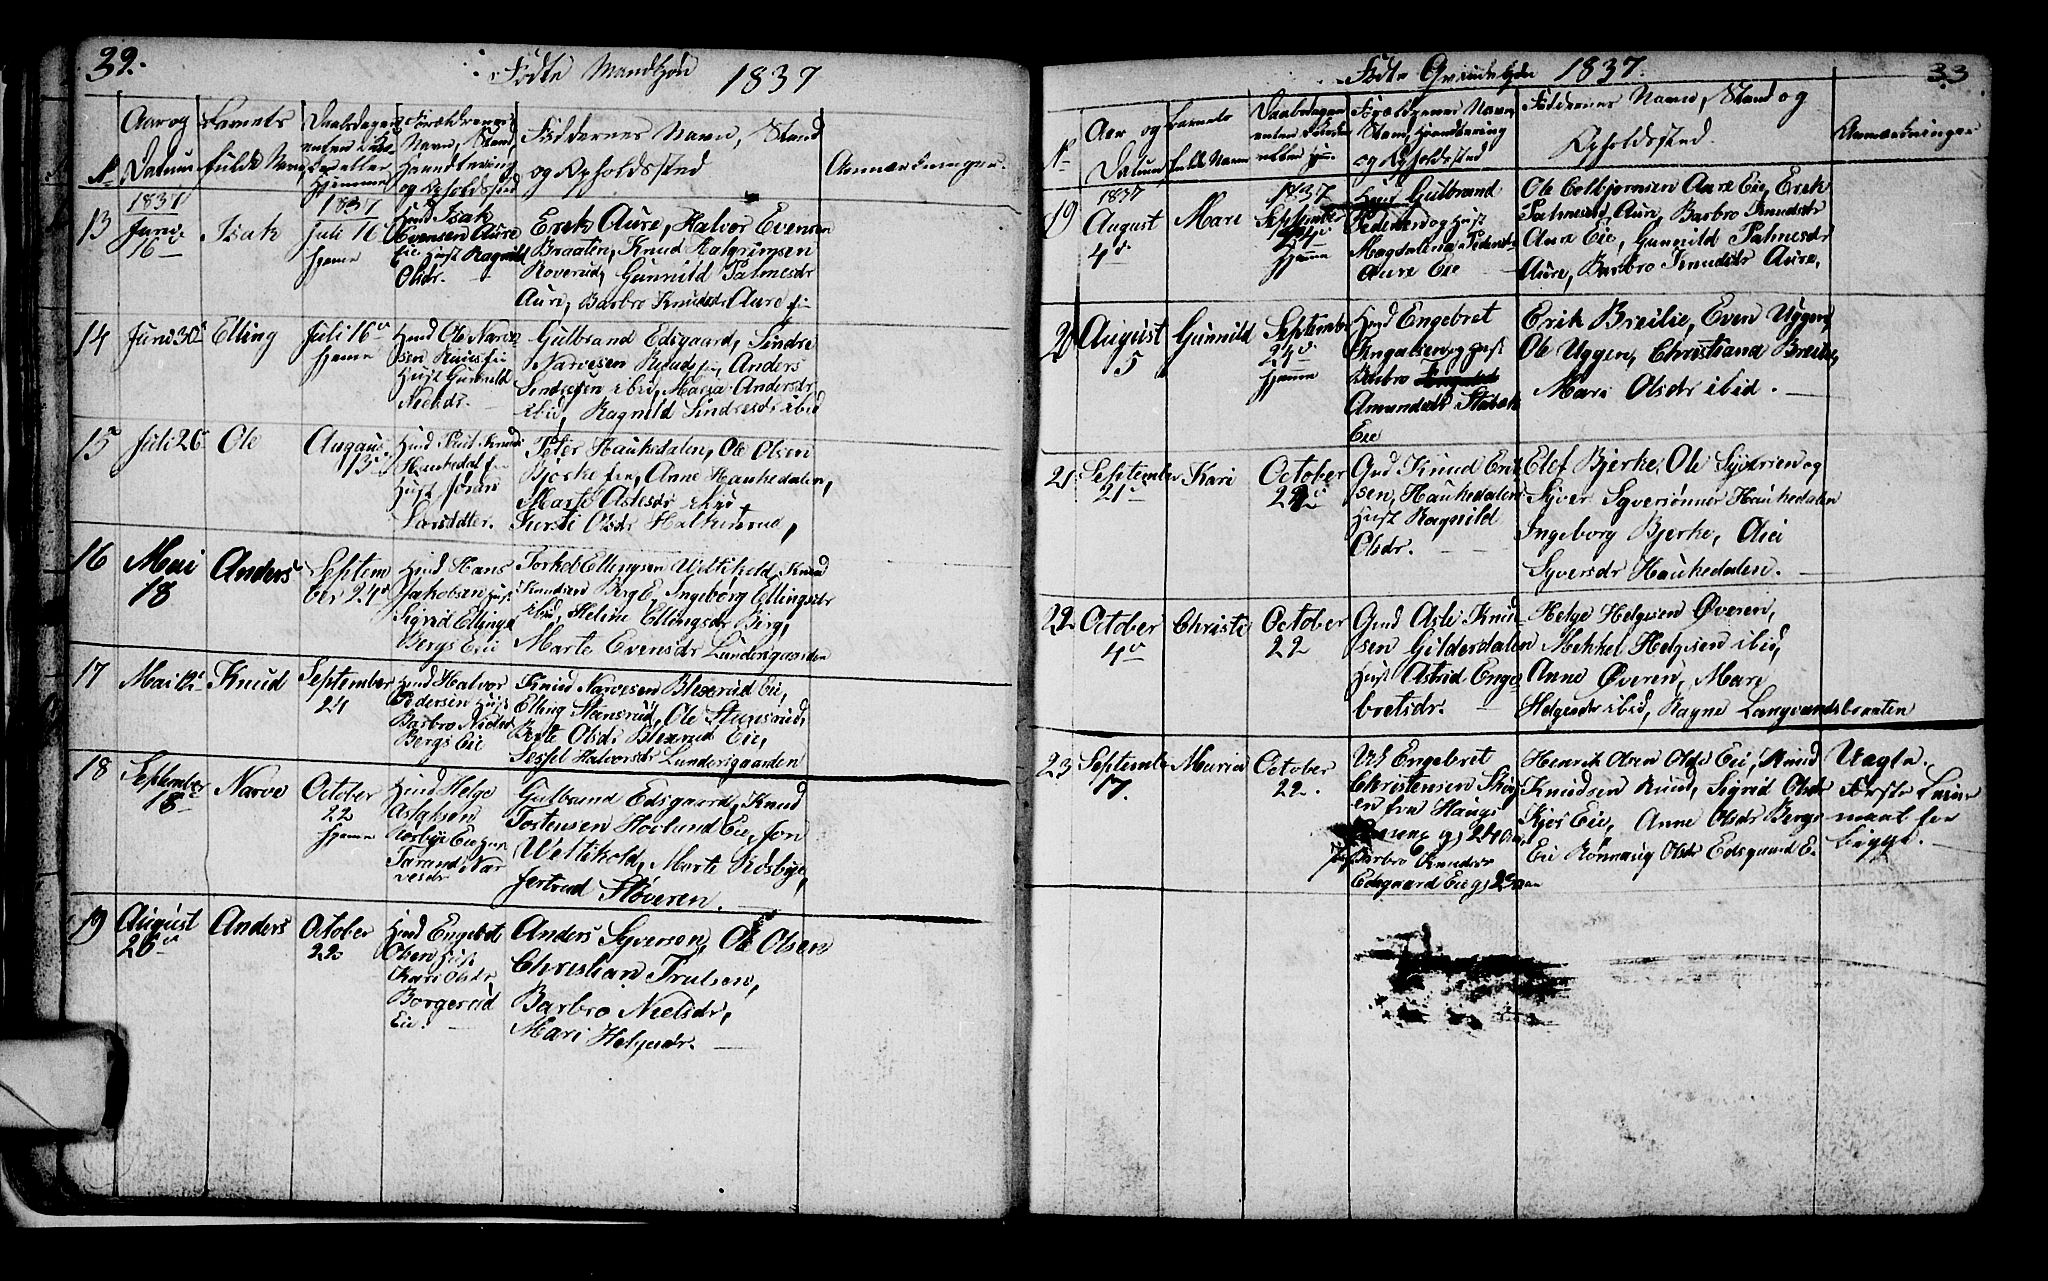 32.
Fødte Mandkjøn 1837
No
Aar og Datum
Barnets fulde Navn
Daabsdagen enten i Kirke eller Hjemme
Forældrenes Navn, Stand, Handtering og Opholdssted
Faddernes Navn, Stand og Opholdssted
Anmærkninger.
13
1837
Juni
16
Isak
1837
Juli 16
hjemme
Husd Isak
Evensen Aure
Eie Hust Ragnild
Olsdr.
Erek Aure, Halvor Evensen
Braaten, Knud Halgrimsen
Roverud, Gunnild Palmesdr
Aure, Barbro Knudsdr Aure
14
Juni 30
Elling
Juli 16
hjemme
Husd Ole Narve
sen
Hust Gunnild
Gulbrand Edsgaard, Sindre
Narvesen Anders
Sindresen ibid, Maria Andersdr
ibid, Ragnild Sindresdr ibid
15
Juli 26
Ole
Husd Knud
Haukedal
Hust Jøran
Larsdtter.
Peter Haukedalen, Ole Olsen
Bjerke Anne Haukedalen,
Marte Aslesdr ibid
Kersti Olsdr
16
Mai
18
Anders
Septem
ber 24
Husd Hans
Jakobsen Hust
Sigrid Ellings
Bergs Eie
Torkel Ellingsen Veltikold, Knud
Knudsen Berg E, Ingeborg Ellingsdr
ibid, Heline Ellingsdr Berg,
Marte Evensdr Lundersgaarden
17
Mai
Knud
September
24
Husd Halvor
Pedersen Hust
Barbro
Bergs Eie
Knud Narvesen Blexerud Eie,
Elling Stensrud, Ole Stensrud,
Berte Olsdr Blexerud Eie,
Sessel Halvorsdr Lundersgaarden
18
September
18
Narve
October
22
hjemme
Husd Helge
Aslaksen
Tarand Nar
vesdr
Gulbrand Edsgaard, Knud
Tostensen Hovlund Eie, Jon
Veltikold, Marte Rosbye,
Jertrud Støveren.
19
August
26
Anders
October
22
Husd Engebret
Olsen Hust
Kari Olsdr
Borgerud
Eie.
Anders Syversen, Ole Olsen
Christian Trulsen,
Barbro Nielsdr,
Mari Helgesdr.
33
Fødte Qvindekjøn 1837.
No
Aar og Datum
Barnets fulde Navn
Daabsdagen enten i Kirken eller Hjemme
Forældrenes Navn, Stand, Handtering og Opholdssted
Faddernes Navn, Stand og Opholdssted.
Anmærkninger
19
1837
August
4
Mari
1837
September
24
hjemme
Husd Gulbrand
Pedersen og Hust
Magdalena Pedersdr
Aure Eie
Ole Colbjørnsen Aure Eie, Erek
Palmesen Aure, Barbro Knudsdr
Aure Eie, Gunnild Palmesdr
Aure, Barbro Knudsdr Aure,
20
August
5
Gunnild
September
24
hjemme
Husd Engebret
og Hust
Barbro
Amundsdr
Eie
Erik Breilie, Even Uggen,
Ole Uggen, Christiana Breilie,
Mari Olsdr ibid.
21
September
21
Kari
October
22
Gmd Knud Erik
sen, Haukedalen
Hust Ragnild
Olsdr.
Elef Bjerke, Ole Syversen og
Syver Syversønner Haukedalen
Ingeborg Bjerke,
Syversdr Haukedalen.
22
October
4
Christi
October
22
Gmd Asle Knud
sen Gilderdalen
Hust Astrid Enge
bretsdr.
Helge Helgesen Øveren,
Mekkel Helgesen ibid,
Anne Øveren, Mari
Helgesdr ibid, Ragne Langvandsbraaten
23
September
17.
Maria
October
22.
Engebret
Christensen
fra Haugs
Barbro Knudsdr
Edsgaard Eie
Henrik Olsen Eie, Knud
Knudsen Ruud, Sigrid Olsdr
Kjos Eie, Anne Olsdr Bergs
Eie Rønnaug Olsdr Edsgaard E.
Uægte.
Første Leier
maal for
begge.